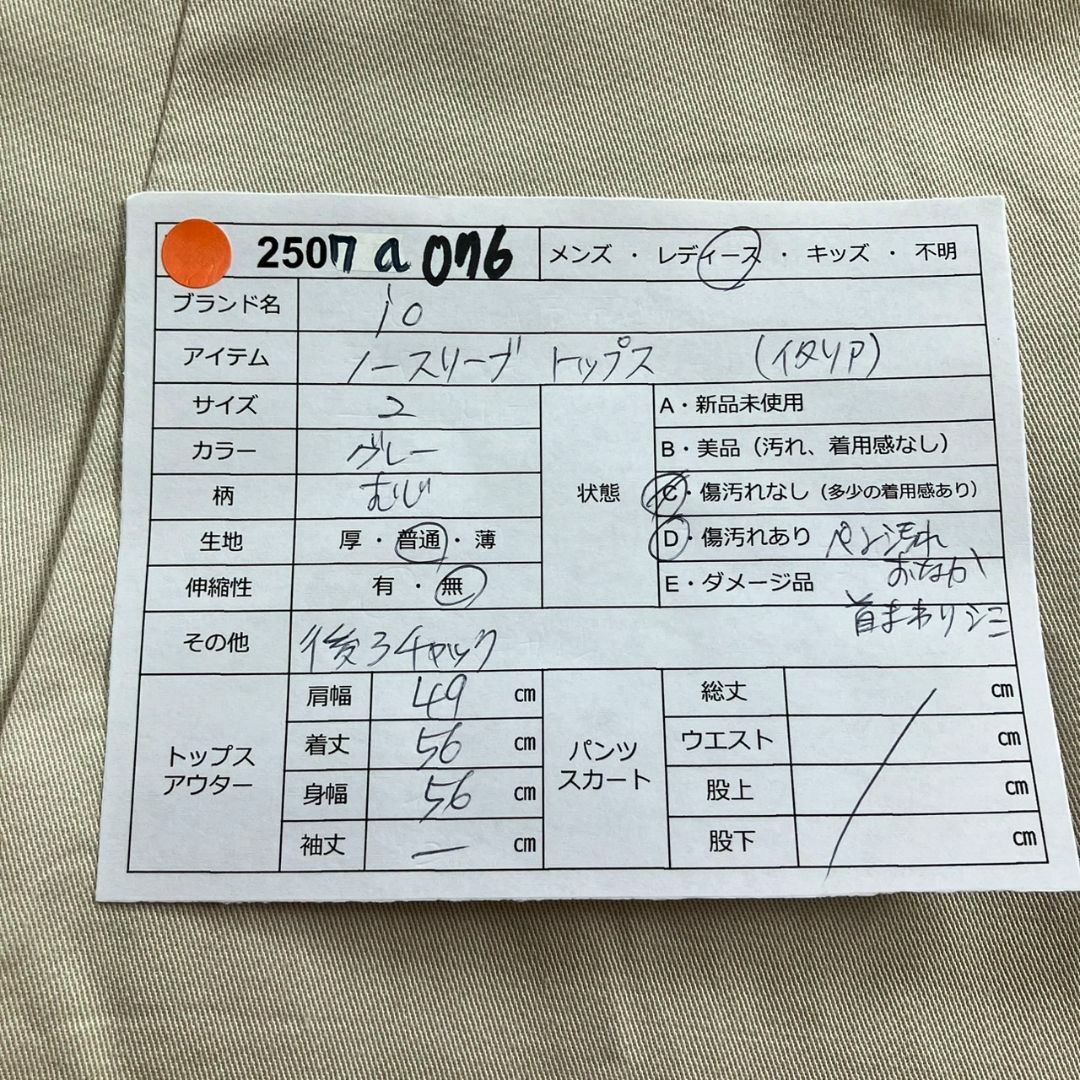 2507 a 076 メンズ ・ レディース ・ キッズ ・ 不明
ブランド名 io
アイテム ノースリーブ トップス (イタリア)
サイズ 2
カラー グレー
柄 むじ
生地 厚 ・ 普通 ・ 薄
伸縮性 有 ・ 無
状態
A・新品未使用
B・美品（汚れ、着用感なし）
C・傷汚れなし（多少の着用感あり）
D・傷汚れあり ペン汚れ
おなか
E・ダメージ品
首まわりシミ
その他 後ろチャック
トップス
アウター
肩幅 49 cm
着丈 56 cm
身幅 56 cm
袖丈 ー cm
パンツ
スカート
総丈 cm
ウエスト cm
股上 cm
股下 cm